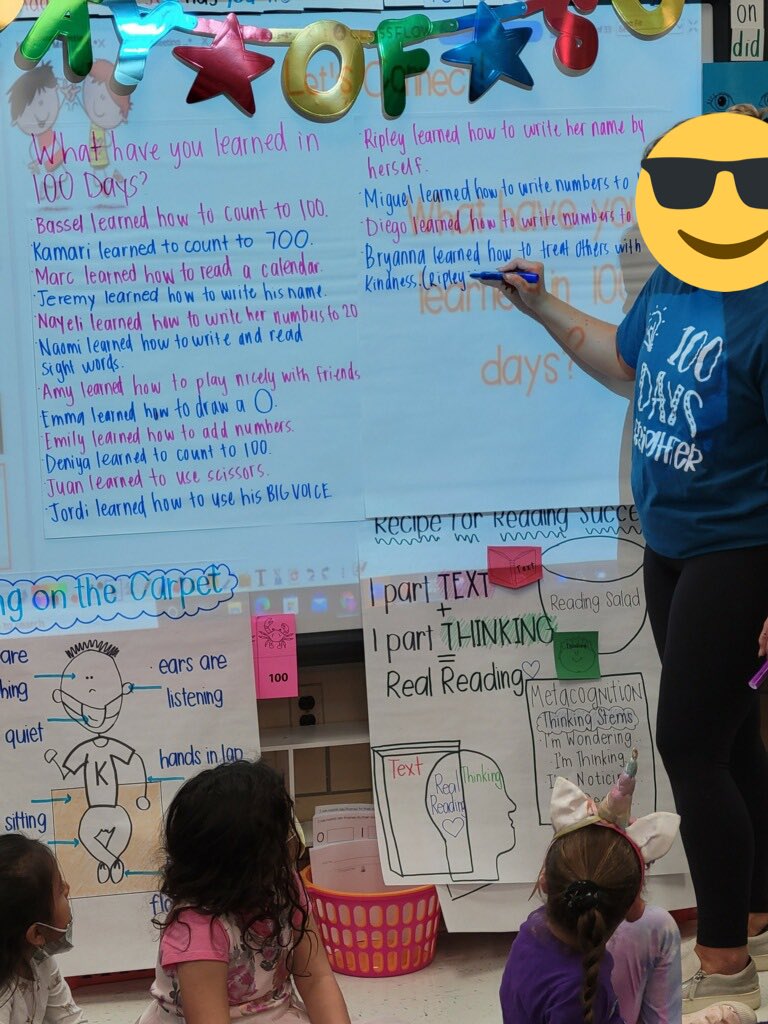 AY OF SO
on
did
Let's Connect
What have you learned in
100 Days?
· Bassel learned how to count to 100.
· Kamari learned to count to 700.
· Marc learned how to read a calendar.
· Jeremy learned how to write his name.
· Nayeli learned how to write her numbers to 20
· Naomi learned how to write and read
sight words.
· Amy learned how to play nicely with friends
· Emma learned how to draw a O.
· Emily learned how to add numbers.
· Deniya learned to count to 100.
· Juan learned to use scissors.
· Jordi learned how to use his BIG VOICE
· Ripley learned how to write her name by
herself.
· Miguel learned how to write numbers to
· Diego learned how to write numbers to
· Bryanna learned how to treat others with
kindness. (Ripley
What have you
learned in 100
days?
100
DAYS
Recipe for Reading Succe
1 part TEXT
+
1 part THINKING
=
Real Reading
Text
Reading Salad
Metacognition
Thinking Stems
· I'm Wondering..
· I'm Thinking
Text
Real
Reading
Thinking
ng on the Carpet
are
quiet
sitting
K
· ears are
listening
hands in lap
100